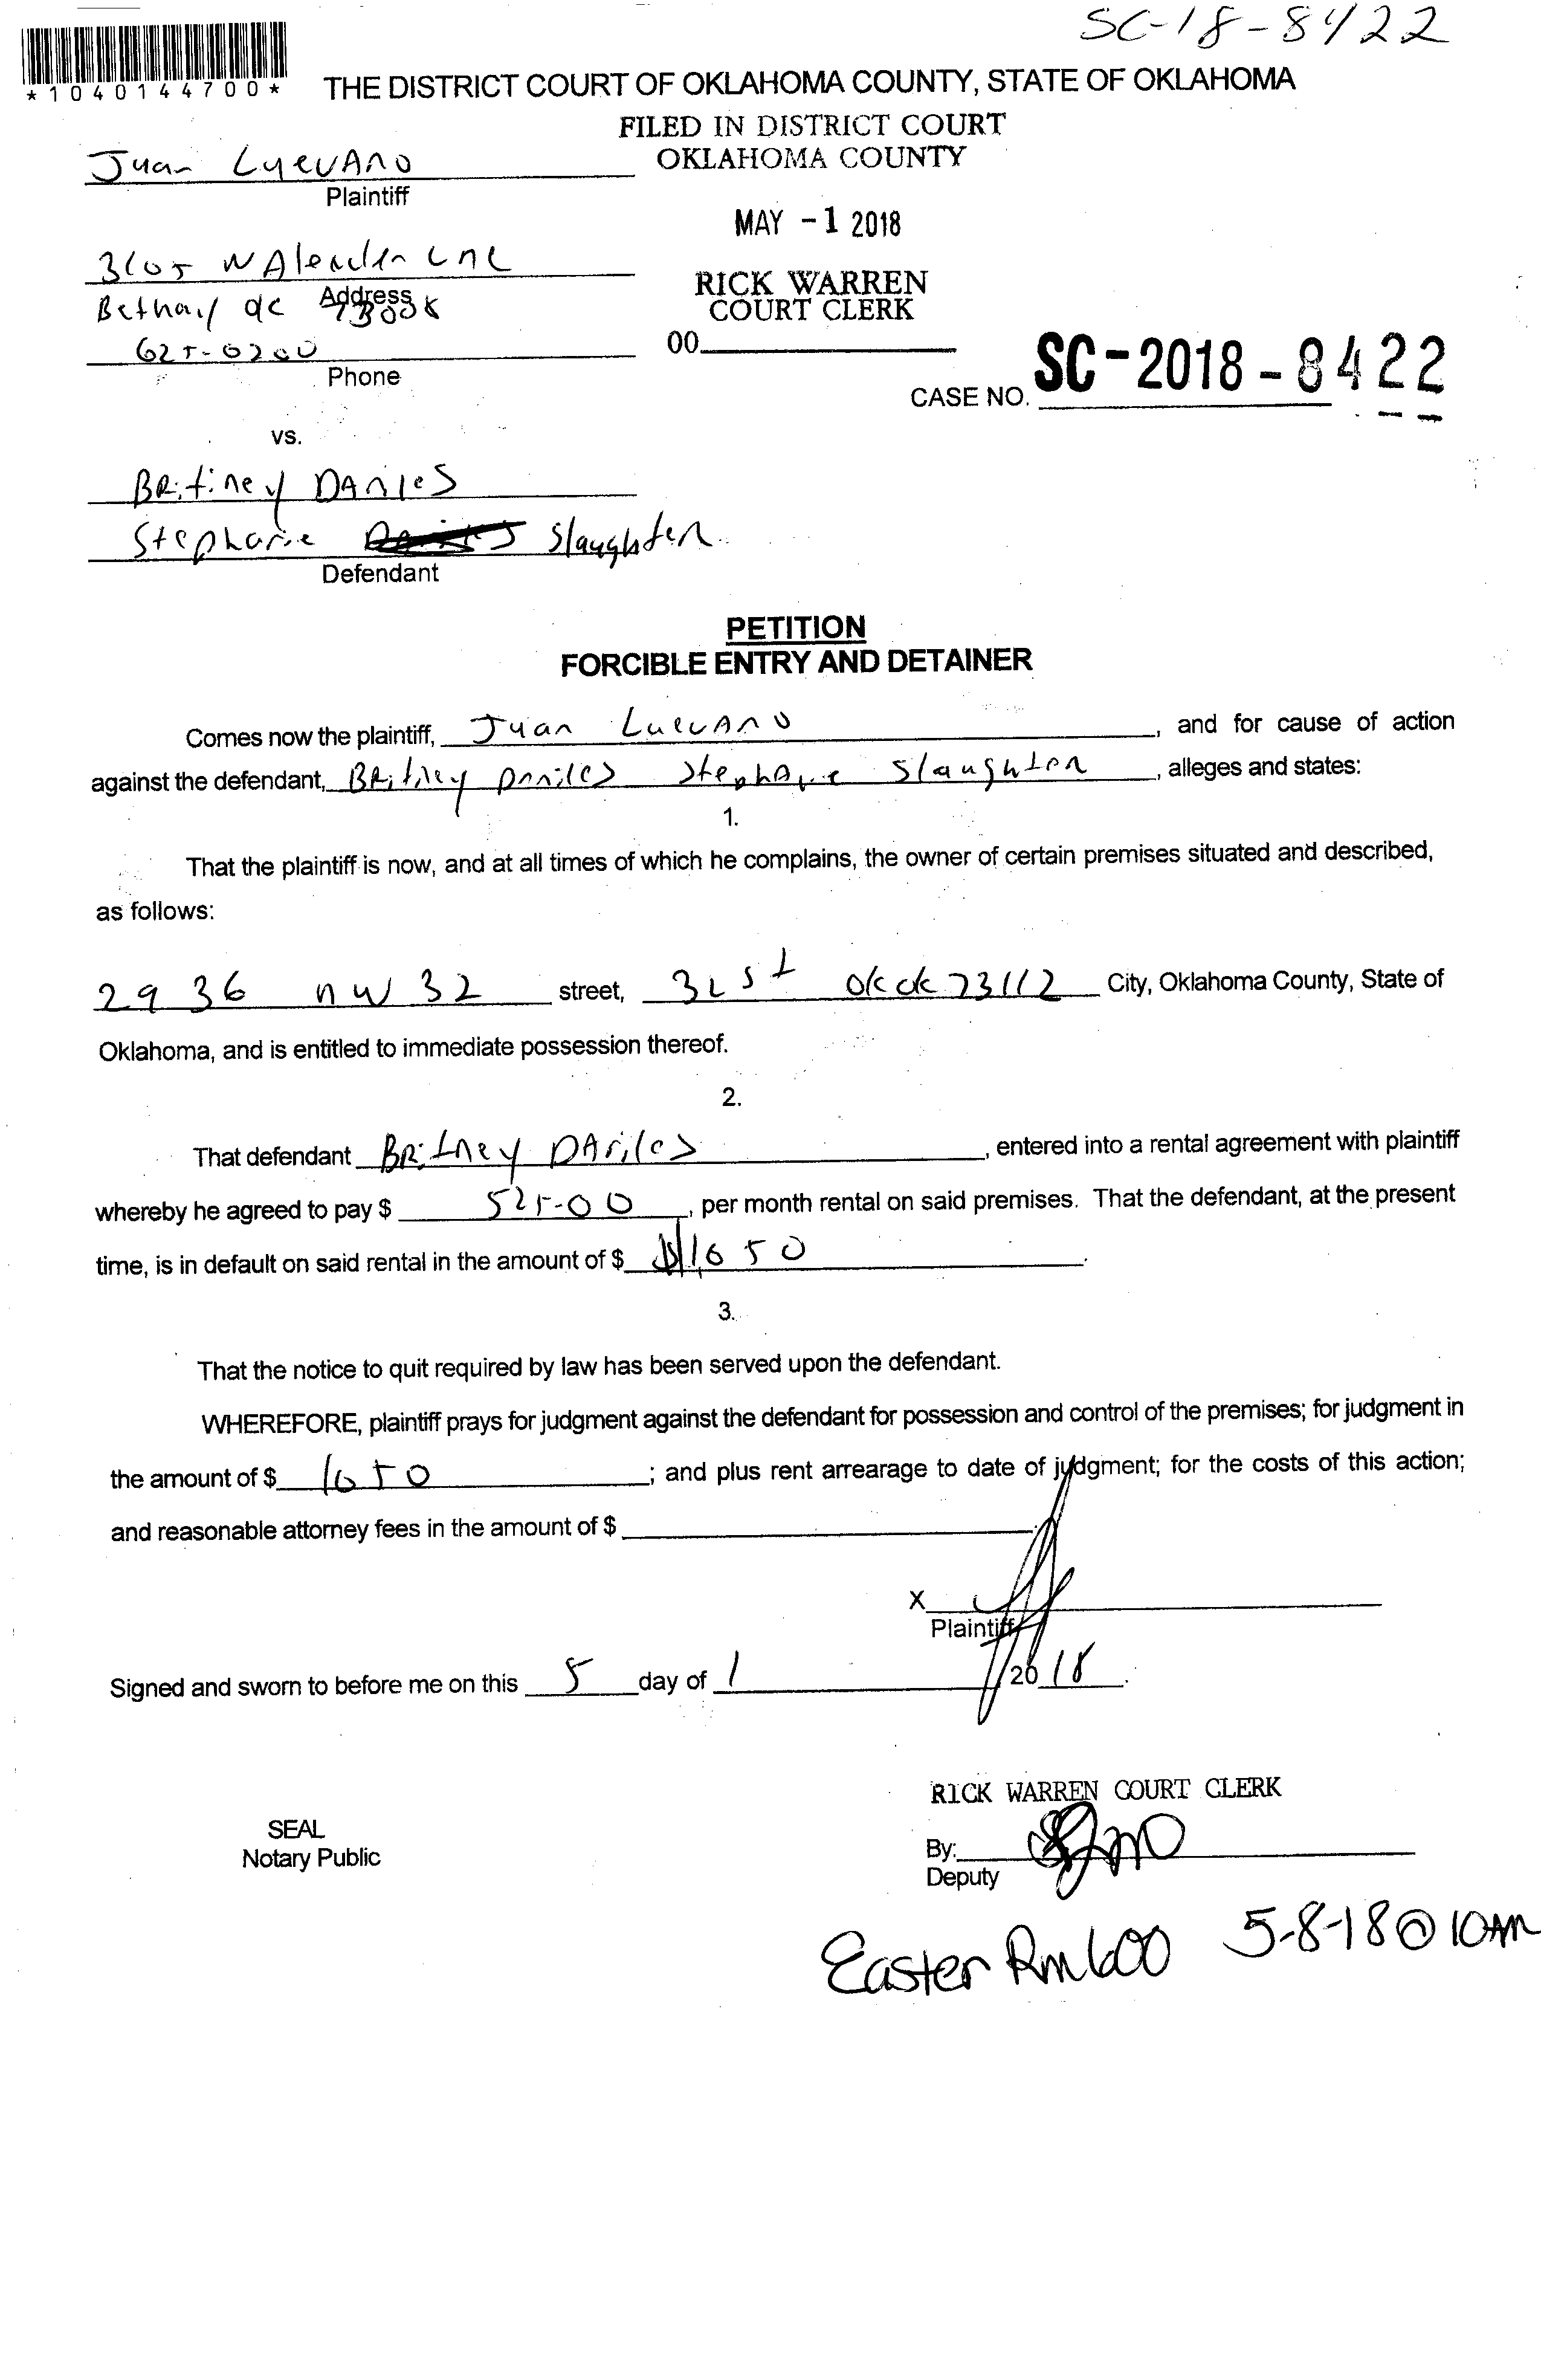 SC-18-8422
*1040144700*
THE DISTRICT COURT OF OKLAHOMA COUNTY, STATE OF OKLAHOMA
FILED IN DISTRICT COURT
OKLAHOMA COUNTY
Juan Luevano
Plaintiff
MAY -1 2018
RICK WARREN
COURT CLERK
Address
Bethany
00
625-0200
Phone
CASE NO. SC-2018-8422
vs.
Stephanie Slaughter
Defendant
PETITION
FORCIBLE ENTRY AND DETAINER
Comes now the plaintiff, Juan Luevano, and for cause of action
against the defendant, Stephanie Slaughter, alleges and states:
1.
That the plaintiff is now, and at all times of which he complains, the owner of certain premises situated and described,
as follows:
2936 nw 32 street, 32 st 73112 City, Oklahoma County, State of
Oklahoma, and is entitled to immediate possession thereof.
2.
That defendant Britney, entered into a rental agreement with plaintiff
whereby he agreed to pay $ 525-00, per month rental on said premises. That the defendant, at the present
time, is in default on said rental in the amount of $ $1,650.
3.
That the notice to quit required by law has been served upon the defendant.
WHEREFORE, plaintiff prays for judgment against the defendant for possession and control of the premises; for judgment in
the amount of $ 1650; and plus rent arrearage to date of judgment; for the costs of this action;
and reasonable attorney fees in the amount of $
X
Plaintiff
Signed and sworn to before me on this 5 day of 1 2018.
RICK WARREN COURT CLERK
SEAL
Notary Public
By:
Deputy
Easter Rm 600 5-8-18 @ 10AM